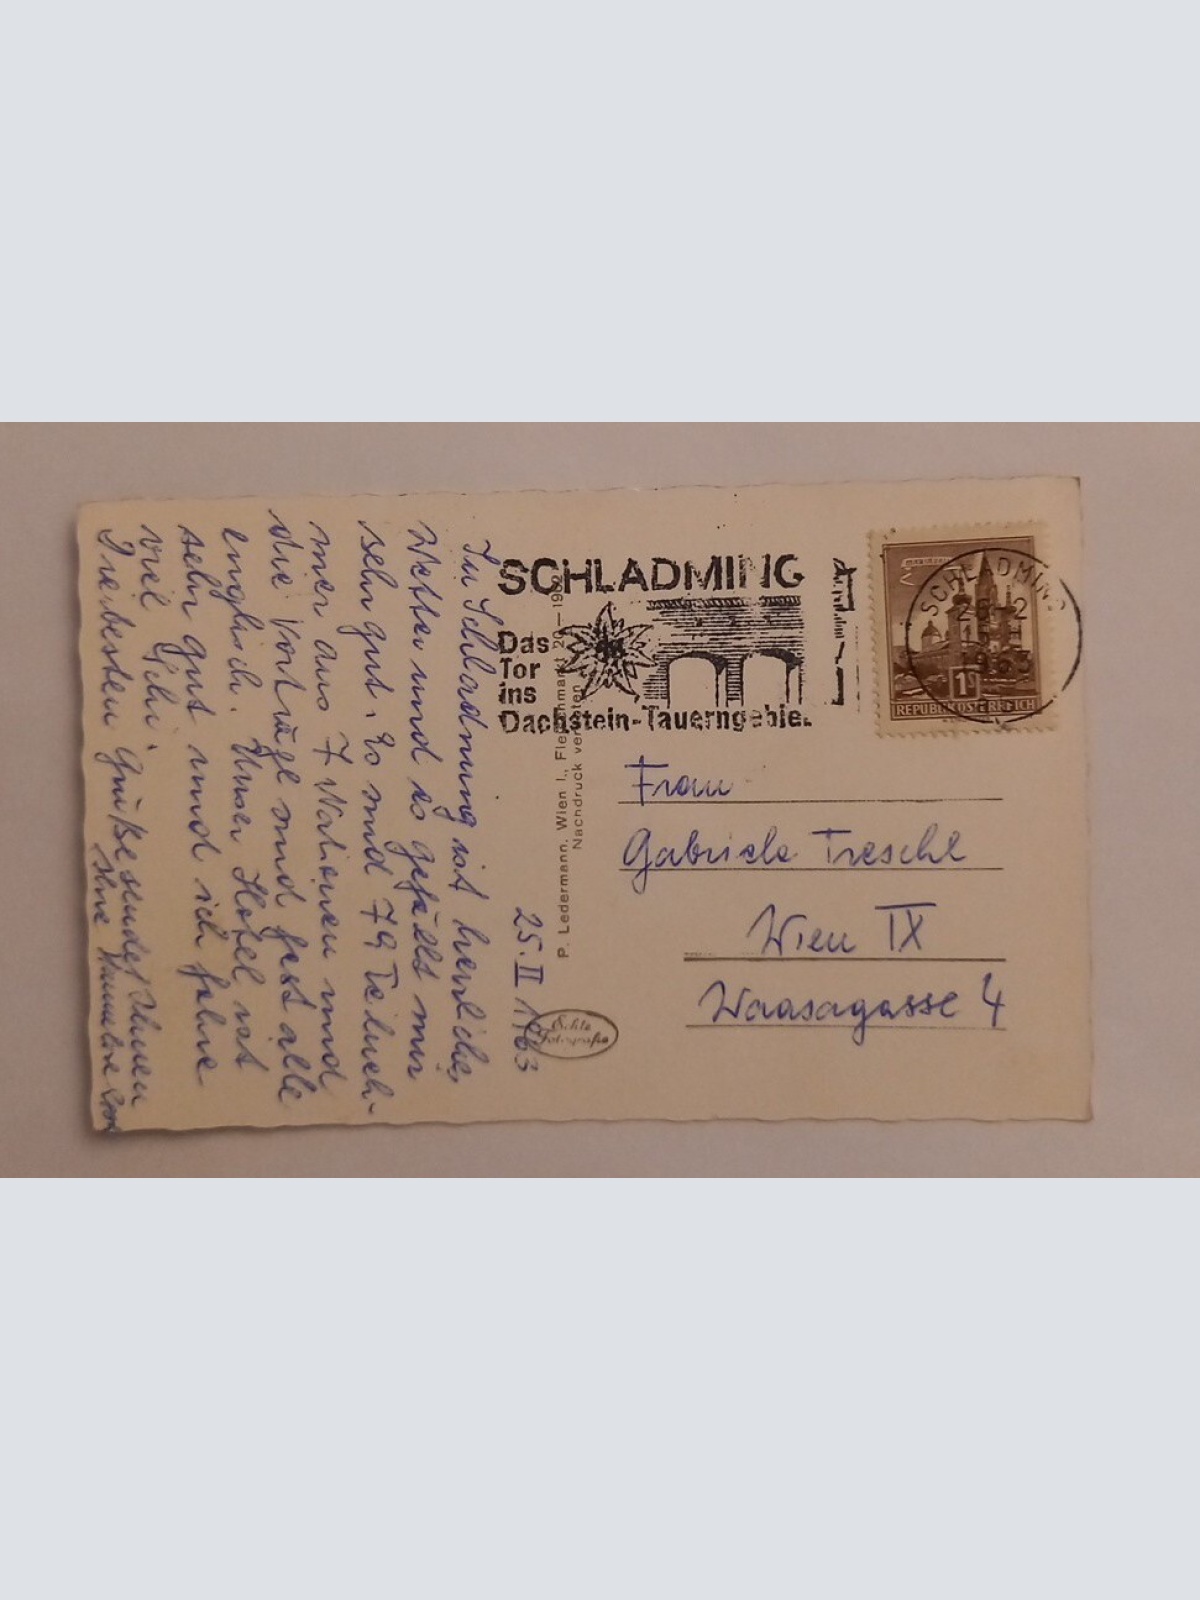 25. II 1963
In Schladming ist herrliches
Wetter und es gefällt mir
sehr gut. Es sind 79 Teilneh-
mer aus 7 Nationen und
die Vorträge sind fast alle
englisch. Unser Hotel ist
sehr gut und ich fahre
viel Schi.
Die besten Grüße sendet Ihnen
Ihre Hannelore
SCHLADMING
Das
Tor
ins
Dachstein-Tauerngebiet
SCHLADMING
25. 2
1963
1S
REPUBLIK ÖSTERREICH
P. Ledermann, Wien I., Fleischmarkt 20
Nachdruck verboten
Echte
Fotografie
Frau
Gabriele Treschl
Wien IX
Waasagasse 4